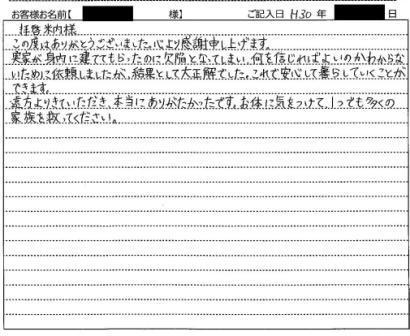 お客様お名前【 様】 ご記入日 H30 年 日
拝啓 米内様
この度はありがとうございました。心より感謝申し上げます。
実家が身内に建ててもらったのに欠陥となってしまい、何を信じればよいのかわからな
いために依頼しましたが、結果として大正解でした。これで安心して暮らしていくことが
できます。
遠方よりきていただき、本当にありがたかったです。お体に気をつけて、1つでも多くの
家族を救ってください。